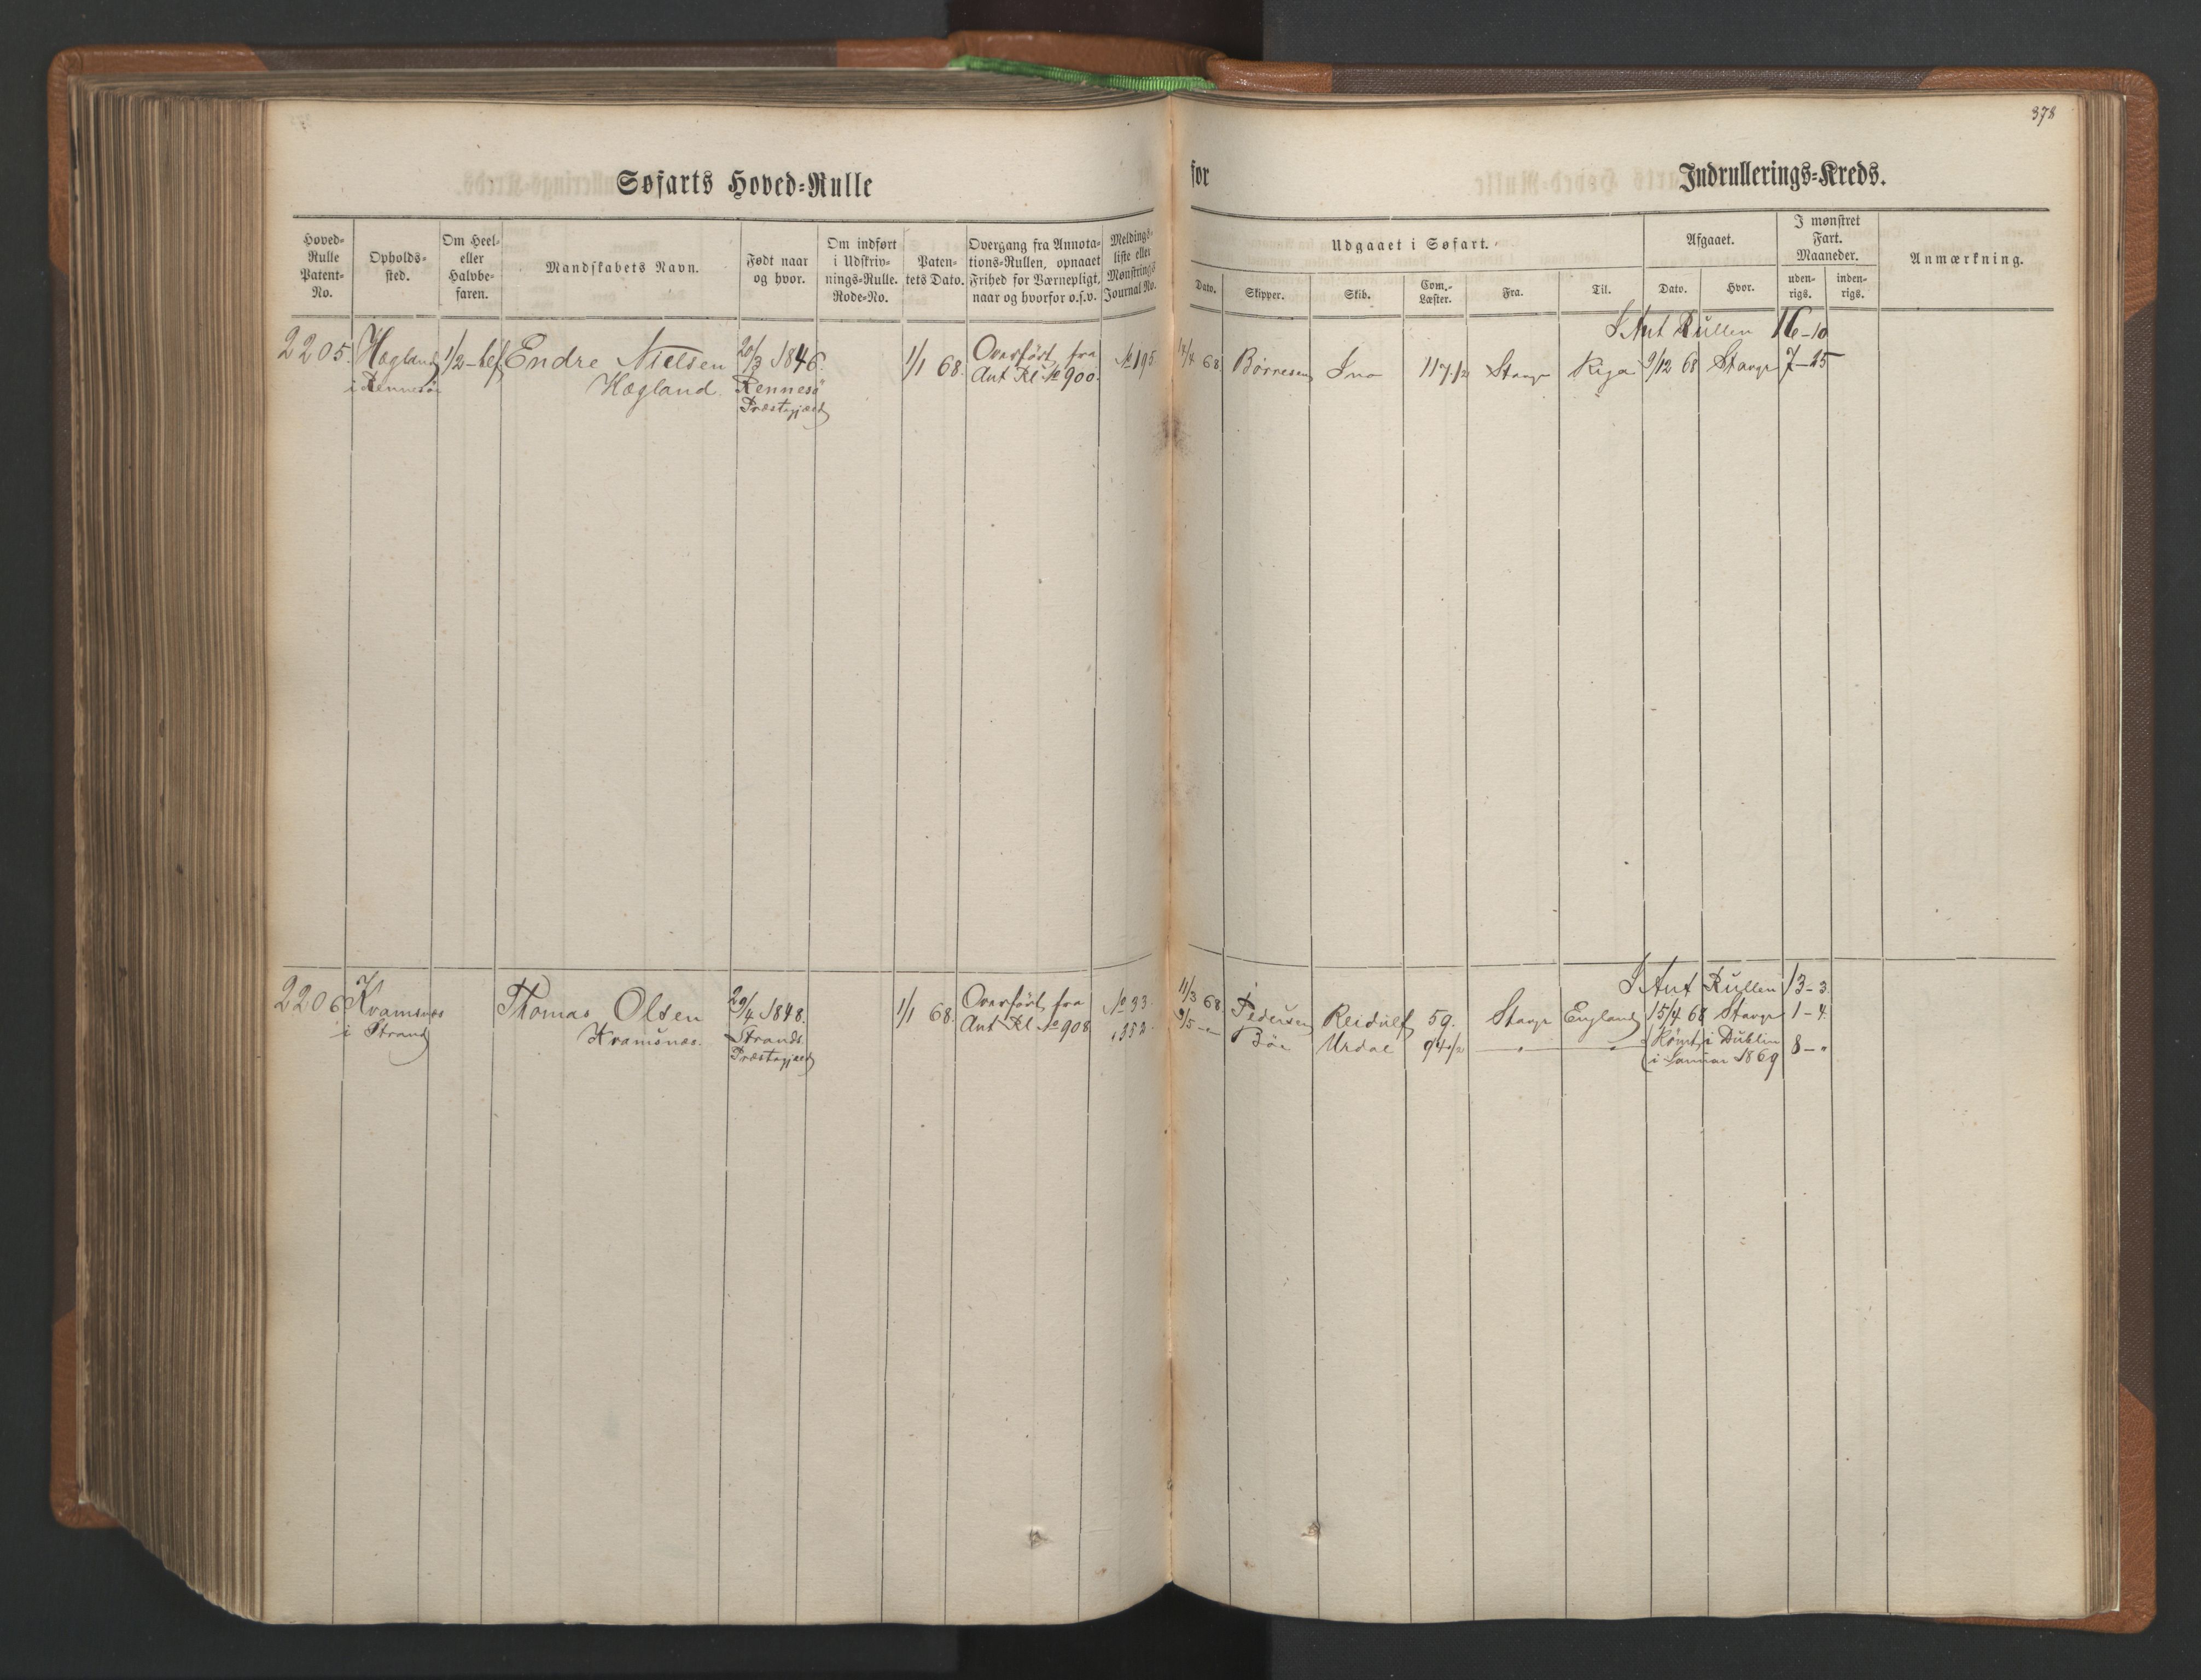 378
Søfarts Hoved-Rulle
for
Indrullerings-Kreds.
Hoved-Rulle Patent-No.
Opholds-sted.
Om Heel- eller Halvbe-faren.
Mandskabets Navn.
Født naar og hvor.
Om indført i Udskriv-nings-Rulle. Rode-No.
Paten-tets Dato.
Overgang fra Annota-tions-Rullen, opnaaet Frihed for Værnepligt, naar og hvorfor o.s.v.
Meldings-liste eller Mønstrings Journal No.
Udgaaet i Søfart.
Dato.
Skipper.
Skib.
Com.-Læster.
Fra.
Til.
Afgaaet.
Dato.
Hvor.
I mønstret Fart. Maaneder.
uden-rigs.
inden-rigs.
Anmærkning.
I Ant Rullen 16-10
2205. Hægland 1/2-bef Endre Nielsen 20/3 1846. 1/1 68. Overført fra № 195 14/4 68 Børresen Ino 117 1/2 Stavgr Riga 9/12 68 Stavgr 7-25
i Rennesø Hægland. Rennesø Ant Rl № 900.
Præstegjæld
I Ant Rullen 13-3
2206 Kvamsnæs Thomas Olsen 29/4 1848. 1/1 68. Overført fra № 93. 11/3 68 Pedersen Reidulf 59. Stavgr England 15/4 68 Stavgr 1-4.
i Strand Kvamsnæs. Strands Ant Rl № 908 " 352. 9/5 - " Bøe Urdal 94 1/2 " " Rømt i Dublin 8-"
Præstegjæld i Januar 1869